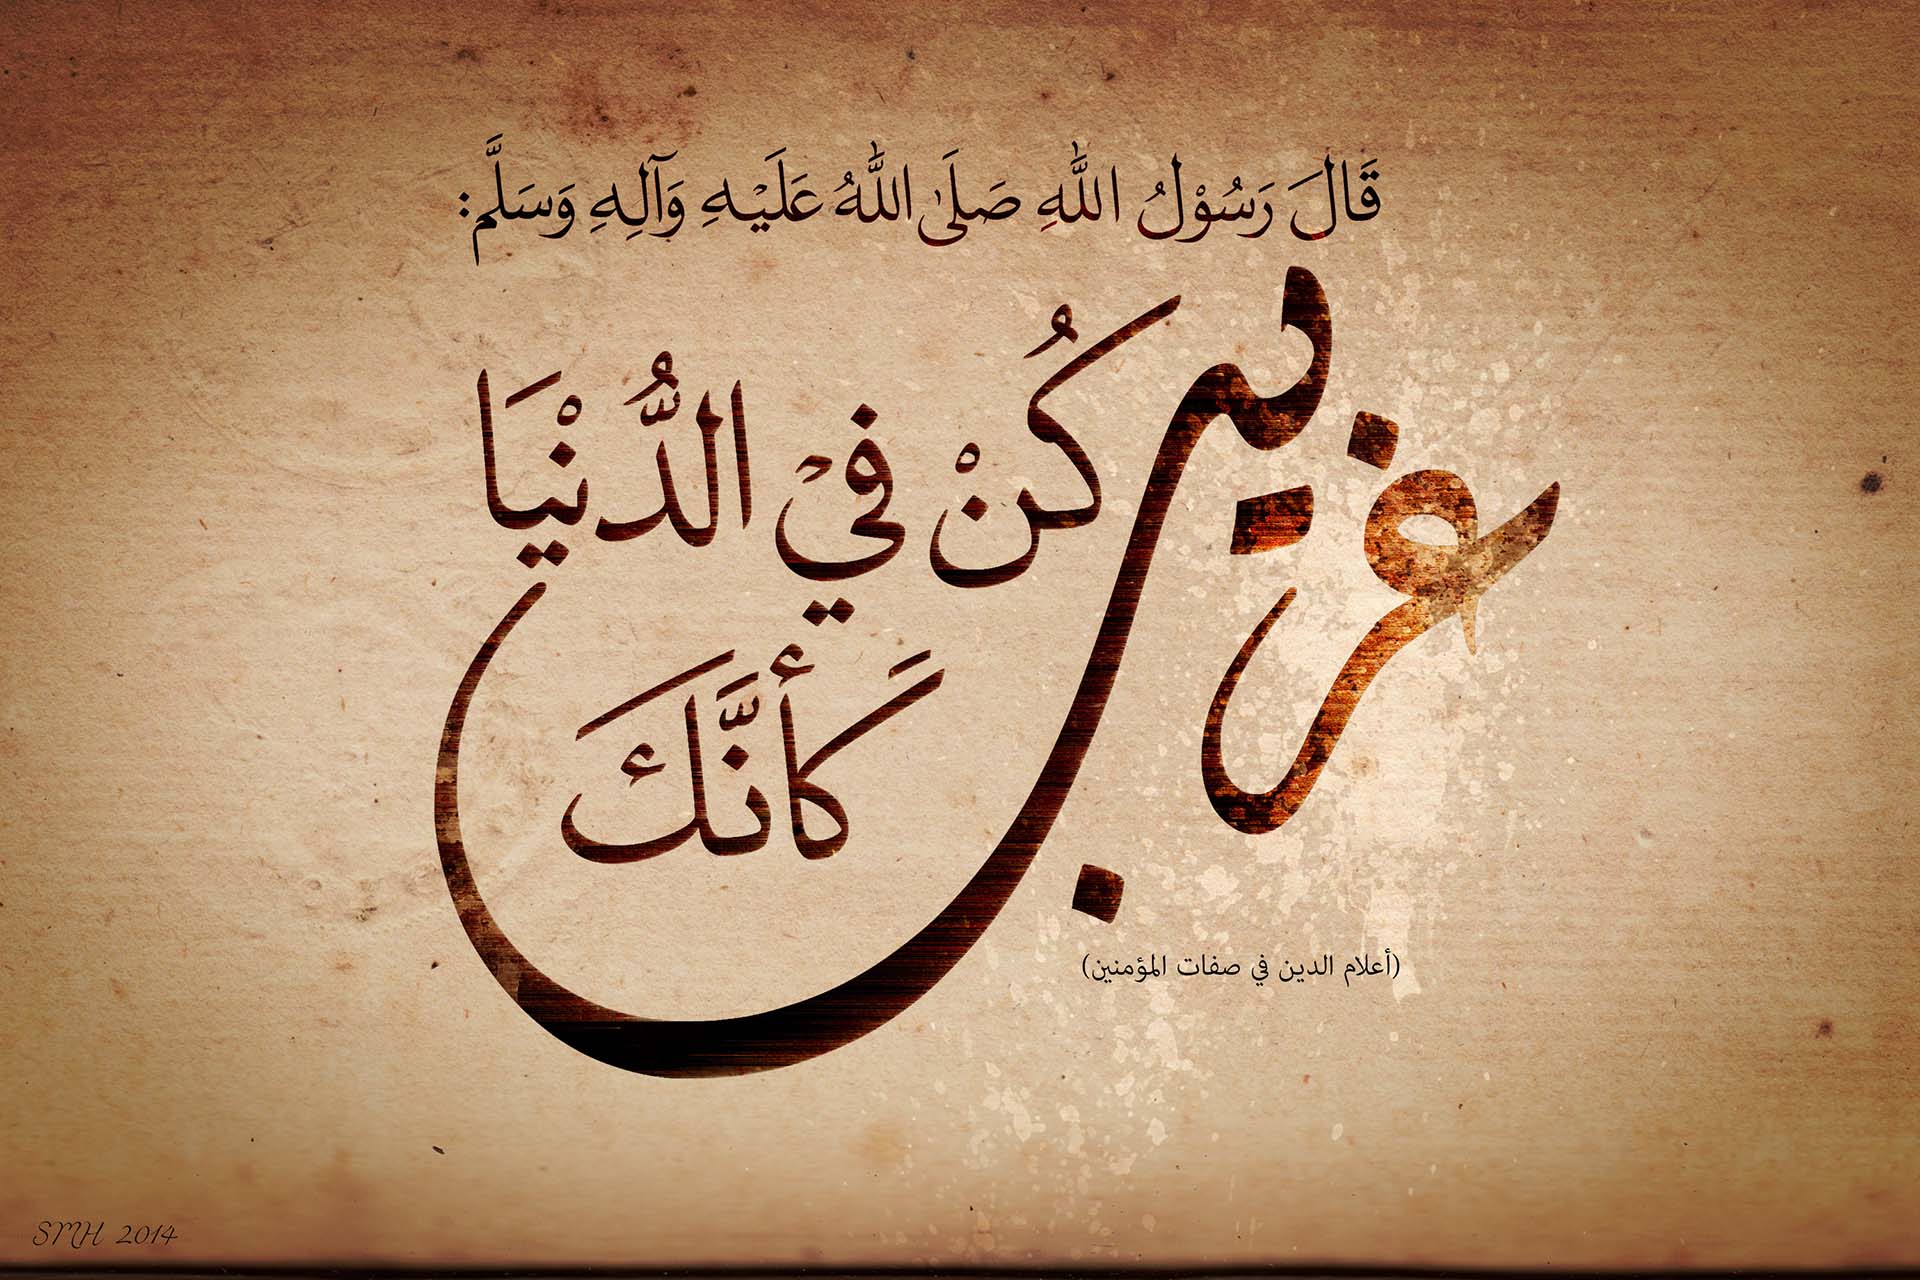 قَالَ رَسُوْلُ اللَّهِ صَلَىٰ اللَّهُ عَلَيْهِ وَآلِهِ وَسَلَّم:
كُنْ فِيْ الدُّنْيَا
كَأَنَّكَ
غريب
(أعلام الدين في صفات المؤمنين)
SMH 2014